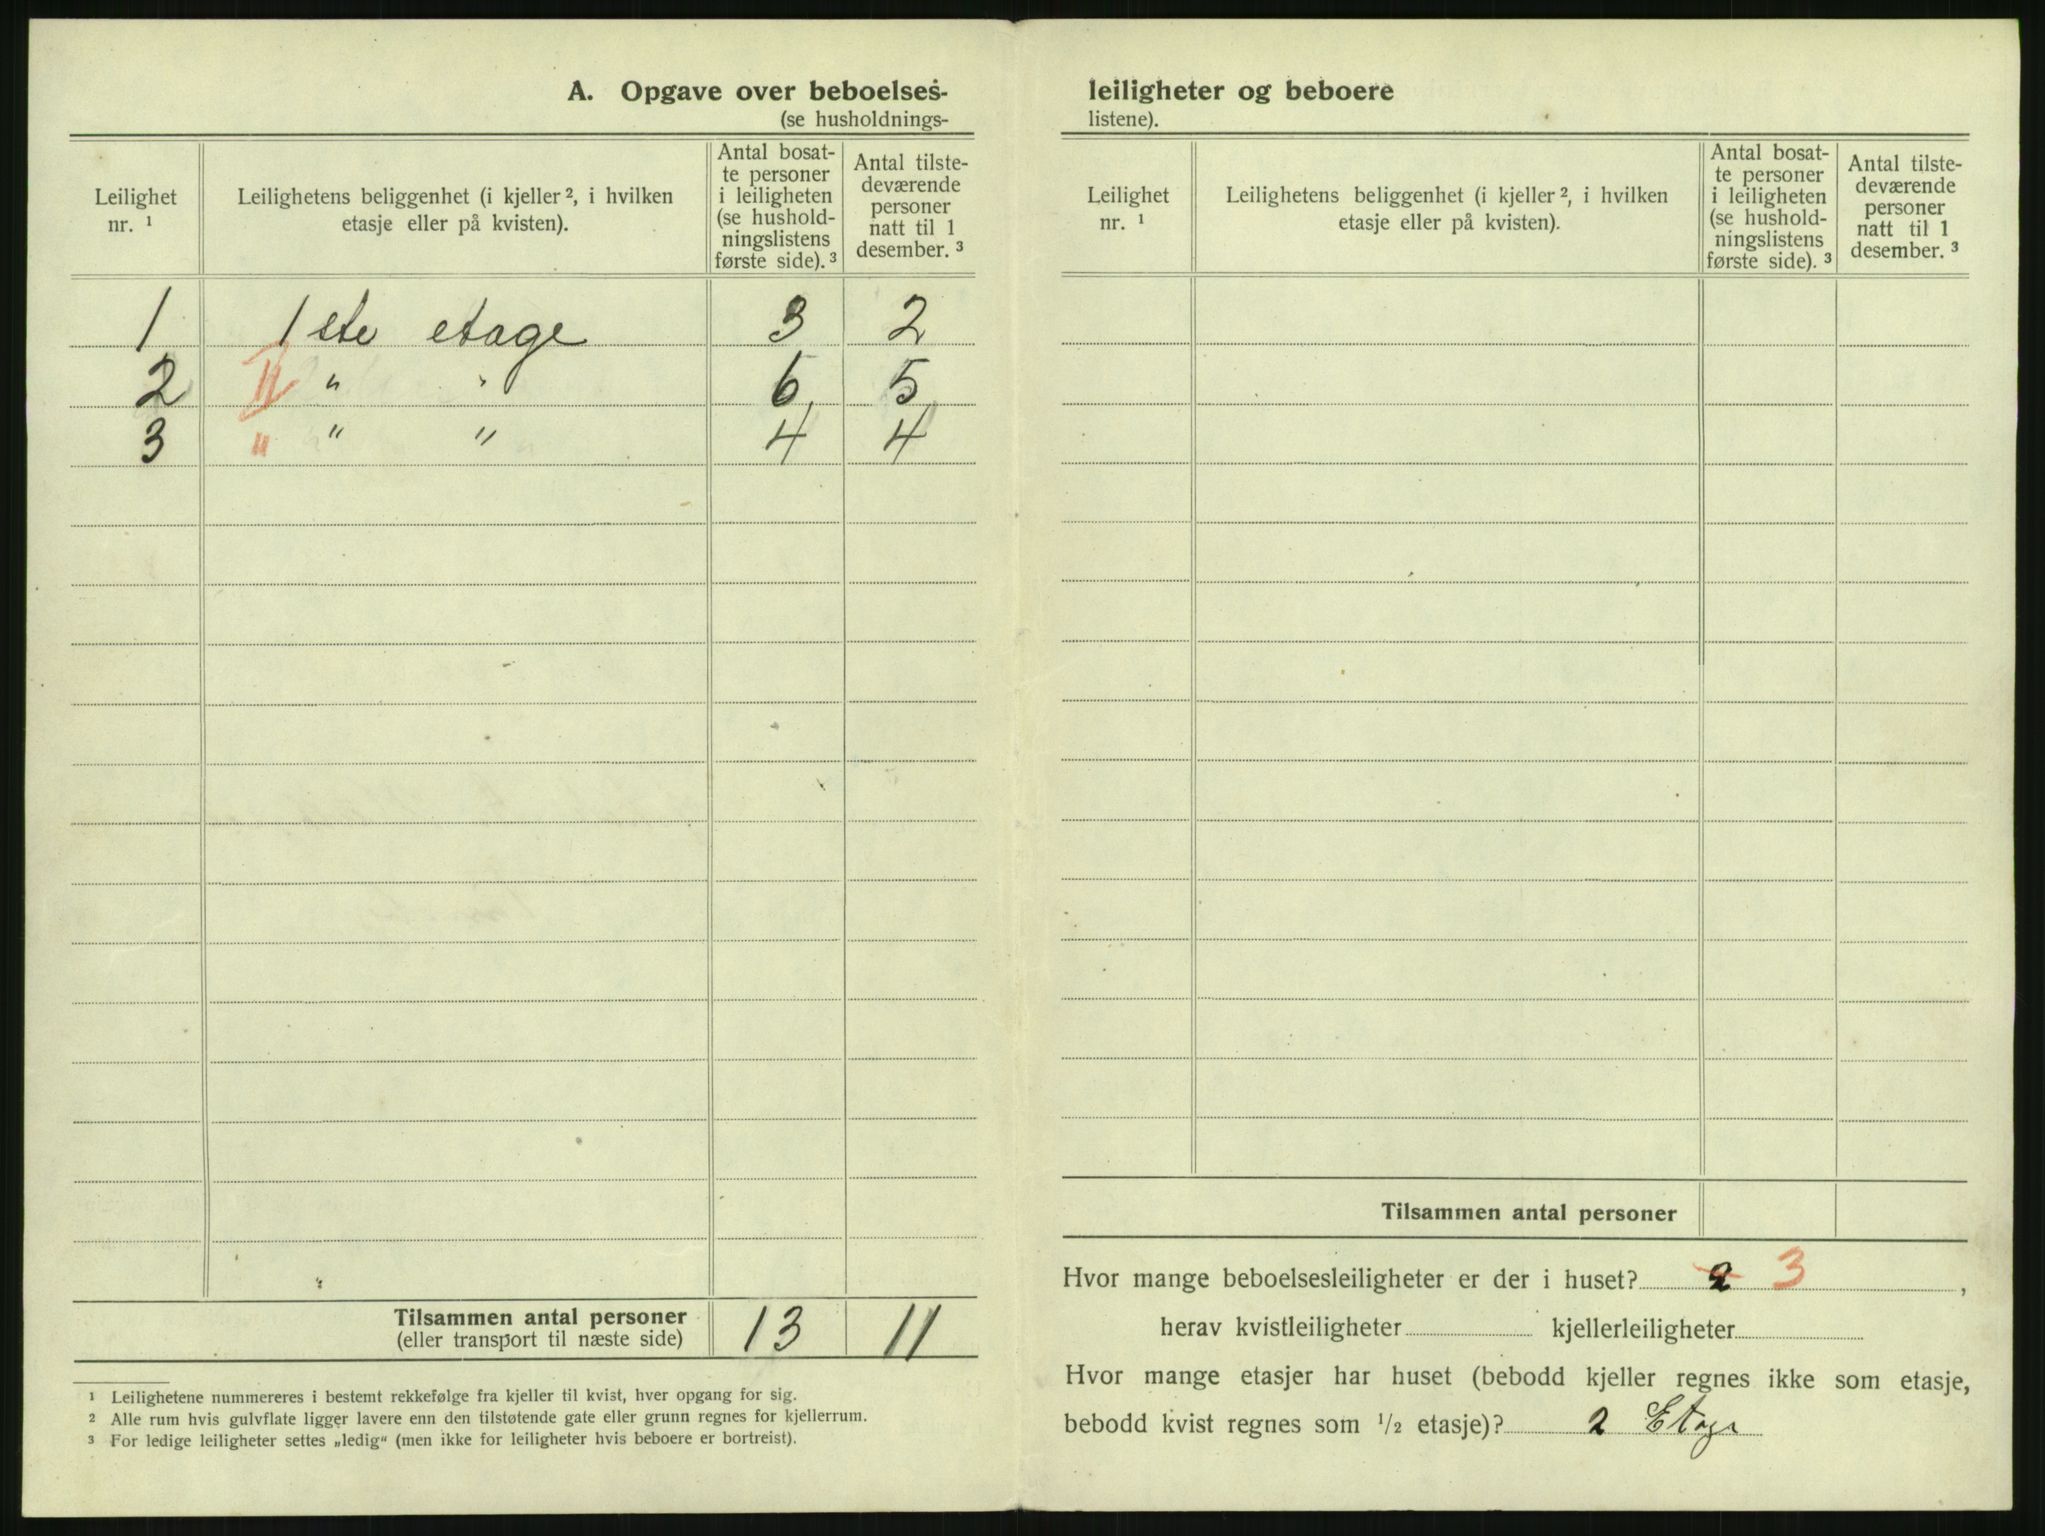 A. Opgave over beboelses-
(se husholdnings-
Leilighet
nr. ¹
Leilighetens beliggenhet (i kjeller ², i hvilken
etasje eller på kvisten).
Antal bosat-
te personer
i leiligheten
(se hushold-
ningslistens
første side). ³
Antal tilste-
deværende
personer
natt til 1
desember. ³
1 1ste etage 3 2
2 II " " 6 5
3 " " " 4 4
Tilsammen antal personer
(eller transport til næste side)
13 11
¹ Leilighetene nummereres i bestemt rekkefølge fra kjeller til kvist, hver opgang for sig.
² Alle rum hvis gulvflate ligger lavere enn den tilstøtende gate eller grunn regnes for kjellerrum.
³ For ledige leiligheter settes „ledig“ (men ikke for leiligheter hvis beboere er bortreist).
leiligheter og beboere
listene).
Leilighet
nr. ¹
Leilighetens beliggenhet (i kjeller ², i hvilken
etasje eller på kvisten).
Antal bosat-
te personer
i leiligheten
(se hushold-
ningslistens
første side). ³
Antal tilste-
deværende
personer
natt til 1
desember. ³
Tilsammen antal personer
Hvor mange beboelsesleiligheter er der i huset? 2 3,
herav kvistleiligheter kjellerleiligheter
Hvor mange etasjer har huset (bebodd kjeller regnes ikke som etasje,
bebodd kvist regnes som ½ etasje)? 2 Etage